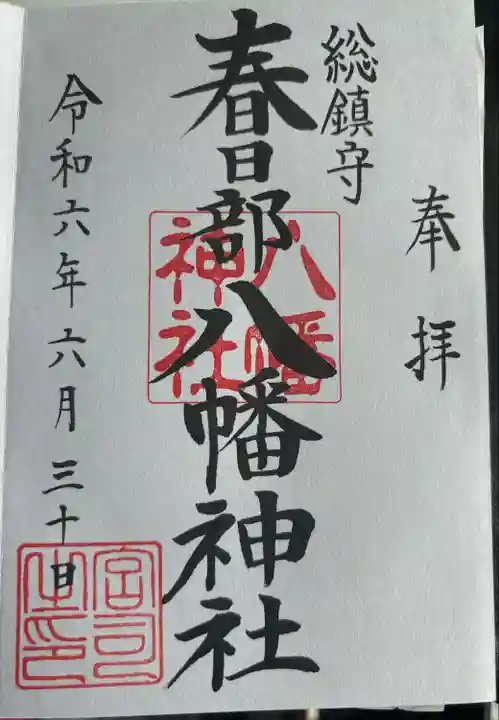 奉拝
総鎮守
春日部八幡神社
八幡神社
令和六年六月三十日
宮司之印